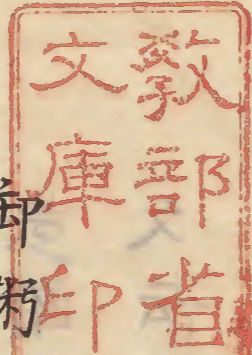 教部省
文庫印
御粥